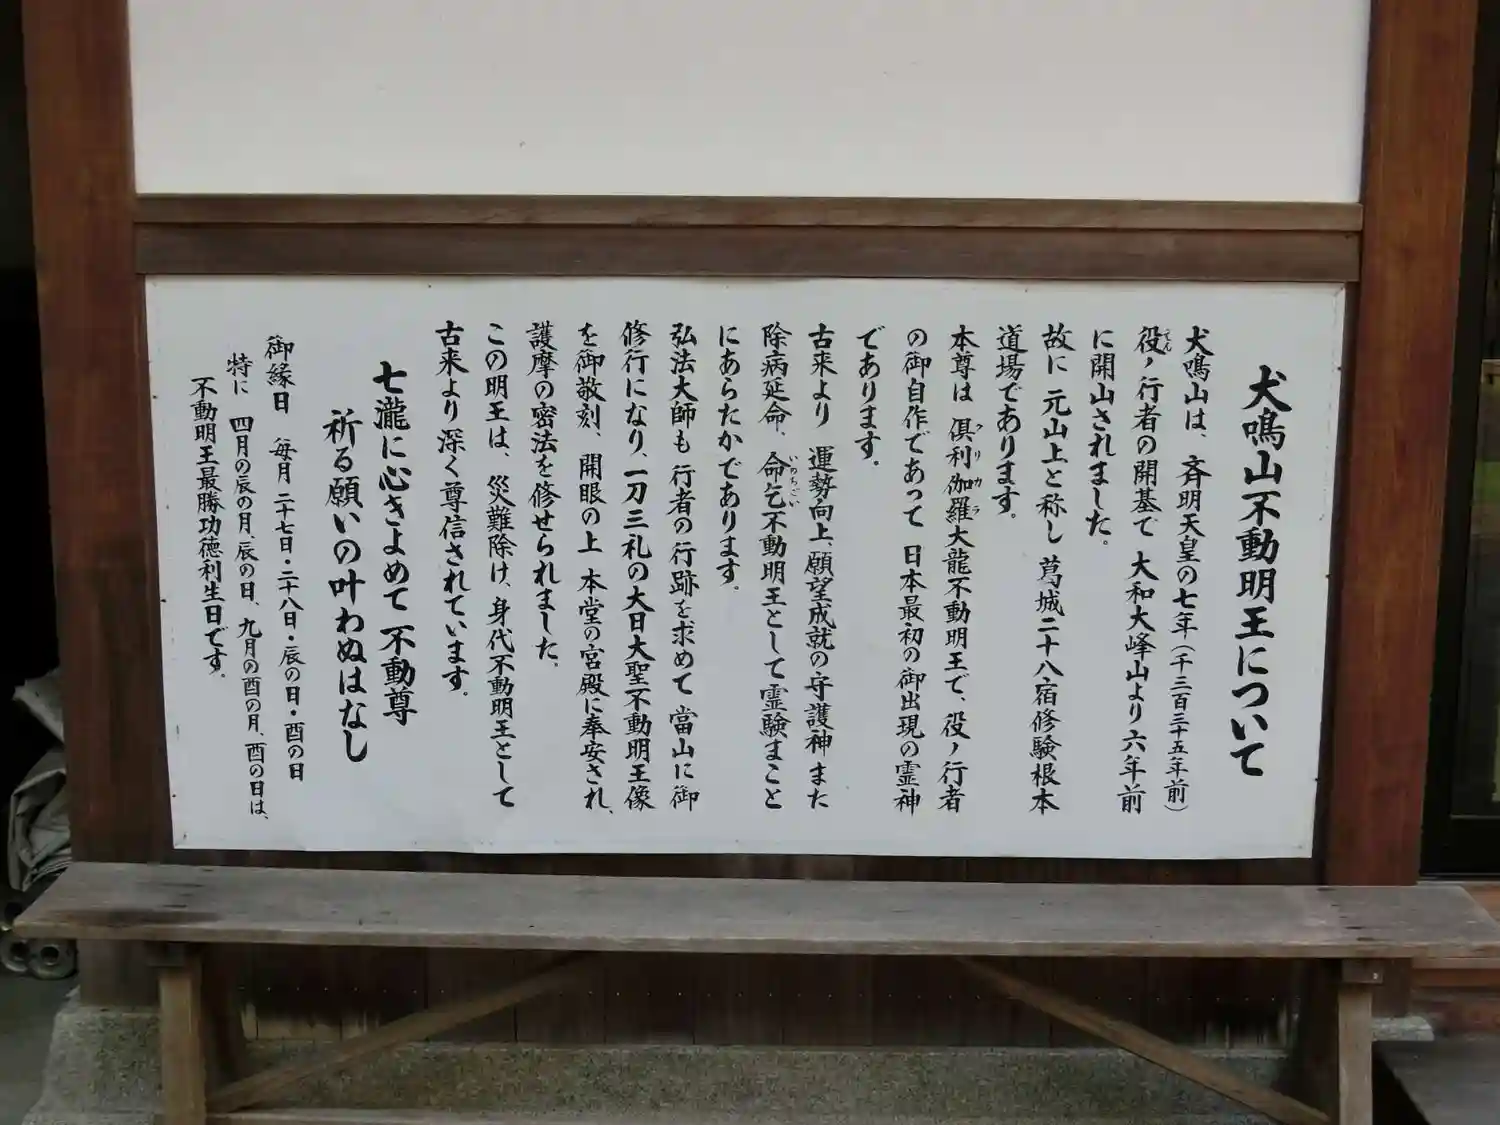 犬鳴山不動明王について
犬鳴山は、斉明天皇の七年(千三百三十五年前)
役ノ行者の開基で 大和大峰山より六年前
に開山されました。
故に 元山上と称し 葛城二十八宿修験根本
道場であります。
本尊は 倶利伽羅大龍不動明王で、役ノ行者
の御自作であって 日本最初の御出現の霊神
であります。
古来より 運勢向上、願望成就の守護神 また
除病延命、命乞不動明王として 霊験まこと
にあらたかであります。
弘法大師も 行者の行跡を求めて 當山に御
修行になり、一刀三礼の大日大聖不動明王像
を御敬刻、開眼の上 本堂の宮殿に奉安され、
護摩の密法を修せられました。
この明王は、災難除け、身代不動明王として
古来より 深く尊信されています。
七瀧に心きよめて 不動尊
祈る願いの叶わぬはなし
御縁日 毎月 二十七日・二十八日・辰の日・酉の日
特に 四月の辰の月、辰の日、九月の酉の月、酉の日は、
不動明王最勝功徳利生日です。